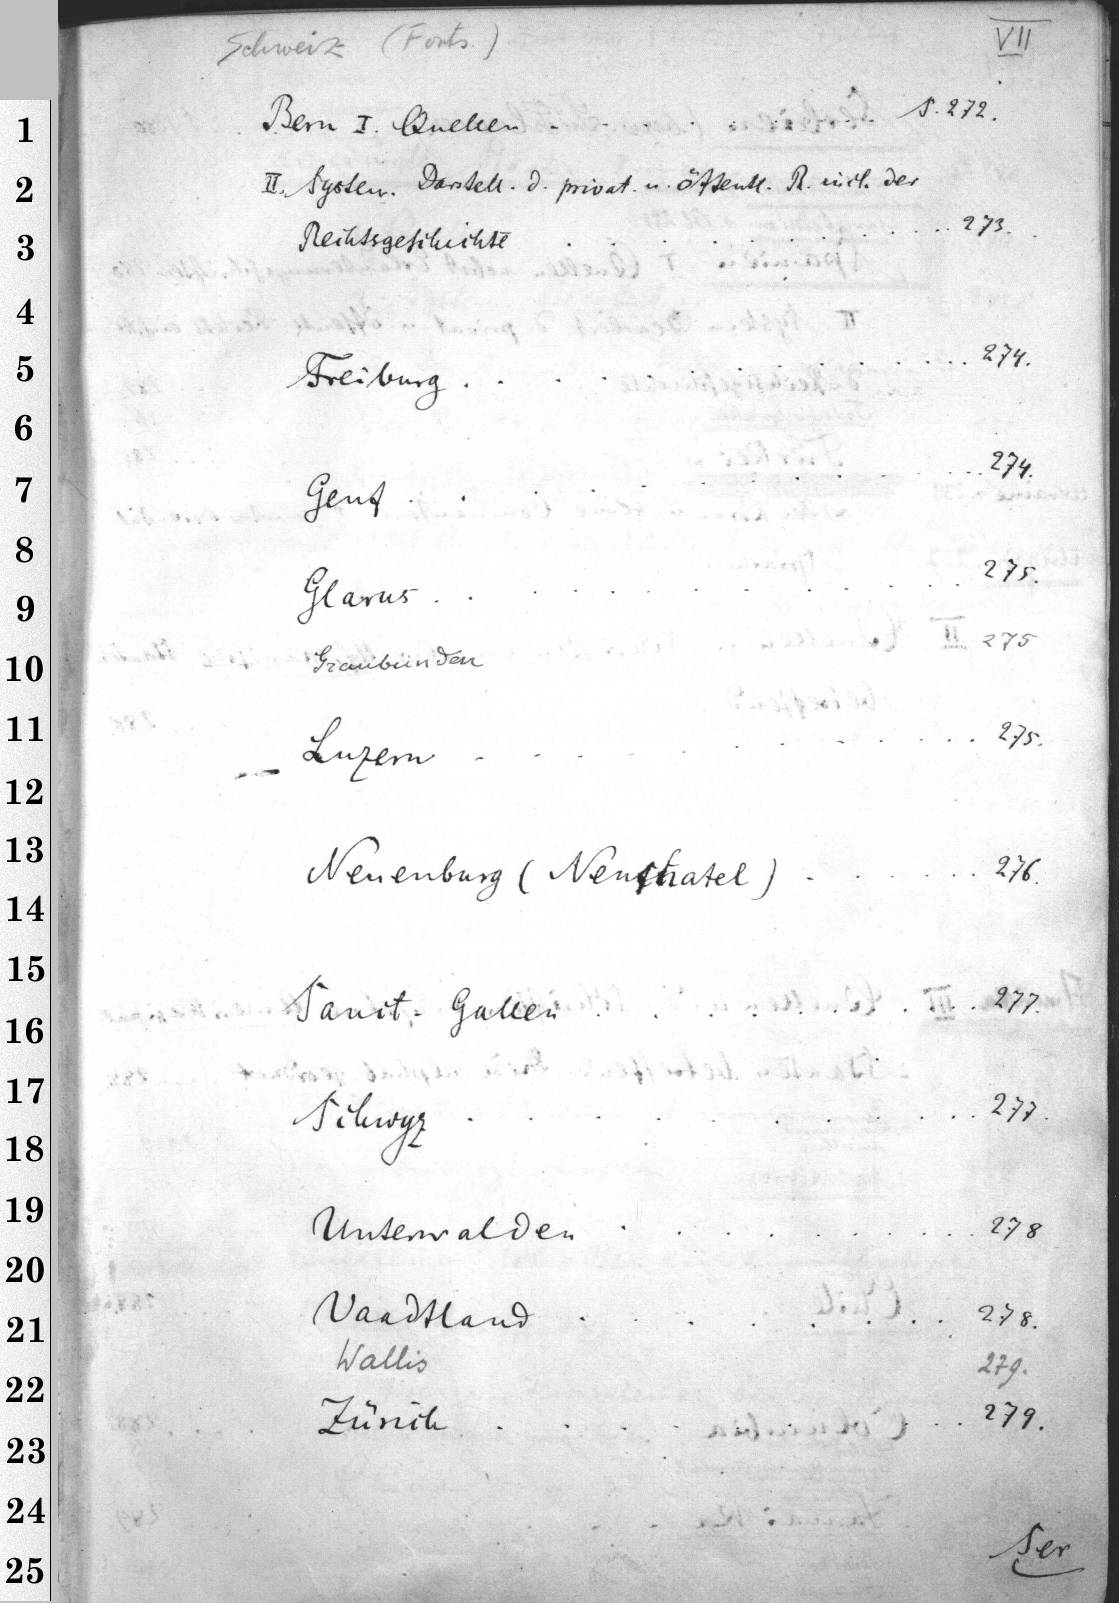 Schweiz (Forts.) VII
1 Bern I. Quellen . . . . . . . . S. 272.
2 II. System. Darstell. d. privat. u. öffentl. R. einl. der
3 Rechtsgeschichte . . . . . . . . 273.
4
5 Freiburg . . . . . . . . 274.
6
7 Genf . . . . . . . . 274.
8
9 Glarus . . . . . . . . 275.
10 Graubünden 275
11 Luzern . . . . . . . . 275.
12
13 Neuenburg (Neuchatel) . . . . . . 276.
14
15
16 Sanct-Gallen . . . . . . . . 277.
17 Schwyz . . . . . . . . 277.
18
19 Unterwalden . . . . . . . . 278
20
21 Vaadtland . . . . . . . . 278.
22 Wallis 279.
23 Zürich . . . . . . . . 279.
24
25 Ser